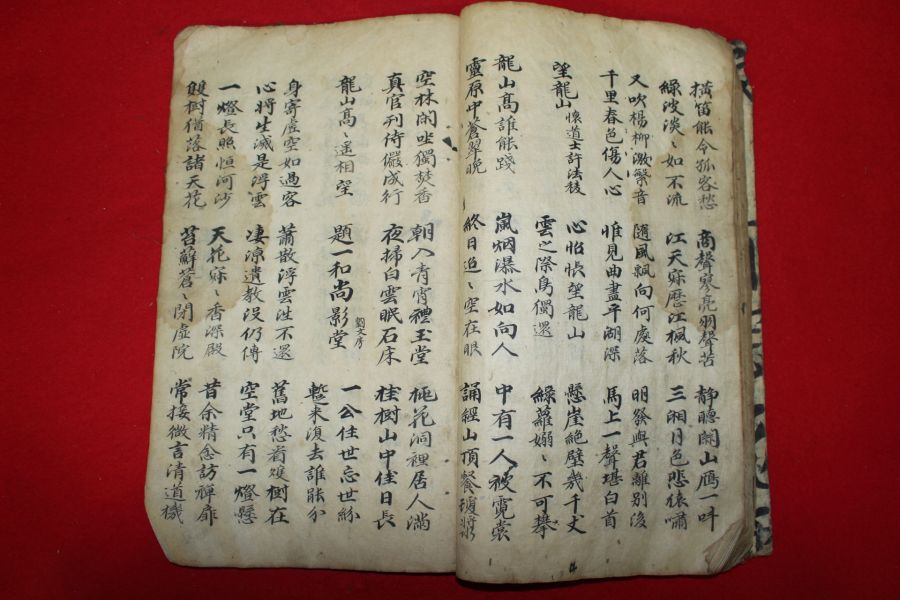 橫笛能令孤客愁
綠波淡〻如不流
商聲寥亮羽聲苦
江天寂歷江楓秋
靜聽關山鴈一呌
三湘月色悲猿嘯
又吹楊柳激繁音
千里春色傷人心
隨風飄向何處落
惟見曲盡平湖深
明發與君離別後
馬上一聲堪白首
望龍山 懷道士許法稜
心怊悵望龍山
雲之際鳥獨還
懸崖絕壁幾千丈
綠蘿嫋〻不可攀
龍山高誰能踐
靈原中蒼翠晚
嵐烟瀑水如向人
終日迢〻空在眼
中有一人披霓裳
誦經山頂餐瓊漿
空林閑坐獨焚香
真官列侍儼成行
朝入青霄禮玉堂
夜掃白雲眠石床
桃花洞裡居人滿
桂樹山中住日長
龍山高〻遥相望
題一和尚影堂 劉文房
一公住世忘世紛
暫來復去誰能分
身寄虛空如過客
心將生滅是浮雲
蕭散浮雲往不還
凄凉遺教沒仍傳
舊地愁看雙樹在
空堂只有一燈懸
一燈長照恒河沙
雙樹猶落諸天花
天花寂〻香深殿
苔蘚蒼〻閉虛院
昔余精念訪禪扉
常接微言清道機